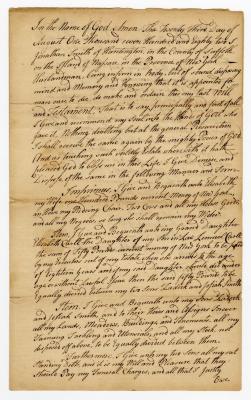 In the Name of God Amen. The Twenty Third Day of
August One Thousand seven Hundred and eighty two I
Jonathan Smith of Huntington, in the County of Suffolk
on the Island of Nassau, in the Province of New York
Husbandman, being infirm in Body, but of sound disposing
mind and Memory and knowing that it is appointed for
man once to die, do make and ordain this my last Will
and Testament. That is to say, principally and first of all
I Give and recommend my Soul into the Hands of God who
gave it. Nothing doubting but at the general Resurrection
I shall receive the same again by the mighty Power of God
And as touching such worldly Estate wherewith it hath
pleased God to bless me in this Life. I Give, Demise, and
Dispose of the same in the following Manner and Form.
Imprimis, I Give and Bequeath unto
my Wife one Hundred Pounds current Money of New York
my Riding Chair, Two Cows and all my
and all my as long as she shall remain my Widow
Item, I Give and Bequeath unto my Grand Daughter
Elizabeth the Daughter of my
the sum of Fifty Pounds current money of New York to be paid
by my Executors out of my Estate when she arrives to the age
of Eighteen Years and if my said Daughter should die under
age or without Issue Then the said fifty Pounds to be
Equally divided between my two Sons and Josiah Smith
Item. I Give and Bequeath unto my Sons
and Josiah Smith, and to their Heirs and Assigns forever
all my Lands, Meadows, Buildings and Tenements, all my
Farming Tackling and Utensils, and all my Stock not
disposed of above, to be Equally divided between them.
Furthermore, I Give unto my two Sons all my out
standing Debts, and it is my Will and Pleasure that they
should Pay my Funeral Charges, and all that I justly
Owe